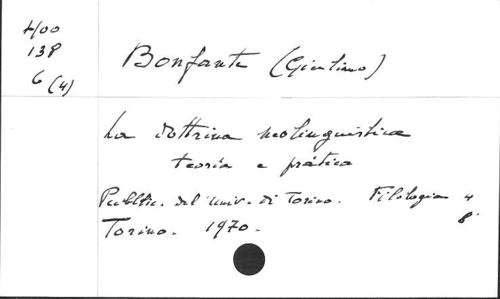 4/00
138
6 (4)
Bonfante (Giuliano)
La dottrina neolinguistica
teoría e prática
Pubblic. del Univ. di Torino. Filologia 4
8º
Torino. 1970.